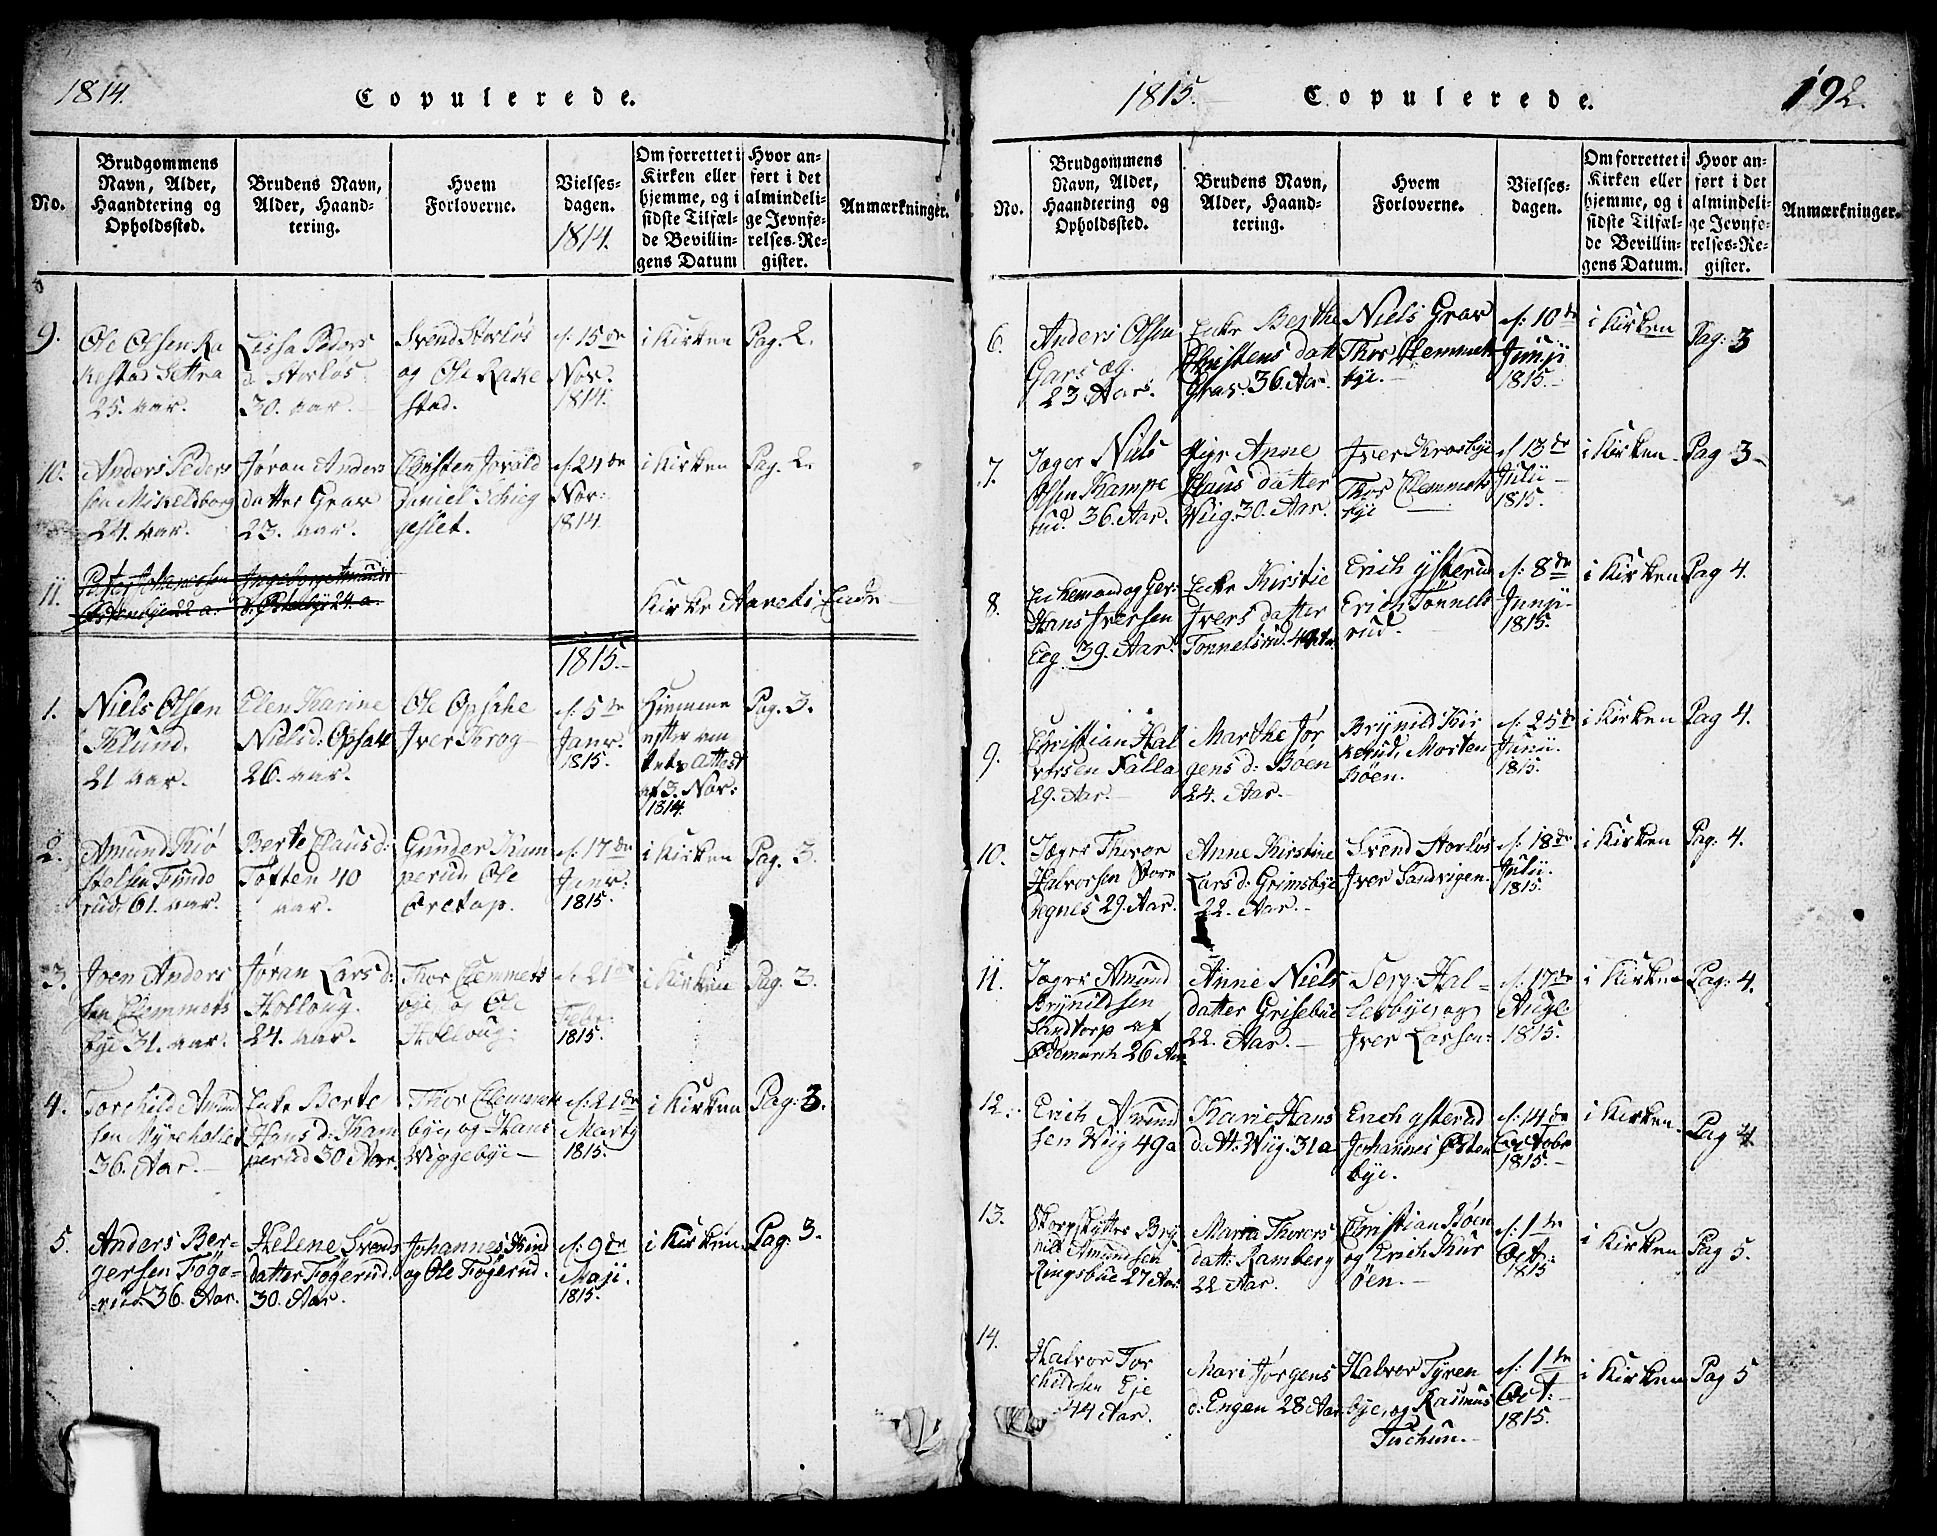 1814.
Copulerede.
No.
Brudgommens
Navn, Alder,
Haandtering og
Opholdssted.
Brudens Navn,
Alder, Haand-
tering.
Hvem
Forloverne.
Vielses-
dagen.
1814.
Om forrettet i
Kirken eller
hjemme, og i
sidste Tilfæl-
de Bevillin-
gens Datum
Hvor an-
ført i det
almindeli-
ge Jevnfø-
relses-Re-
gister.
Anmærkninger.
9.
Ole Olsen Ra
kestad Settra
25. aar.
Lissa Peders
d. Storløs
30. aar.
Svend Storløs
og Ole Rake
stad.
d. 15de
Nov.
1814.
i Kirken
Pag. 2.
10.
Anders Peders
sen Mikelsborg
24. aar.
Jøran Anders
datter Grav
23. aar.
Christen
Daniel
d. 24de
Nov:
1814.
i Kirken
Pag. 2.
11.
Kirke Aarets Ende
1815.
1.
Niels Olsen
Klund.
21 aar.
Elen Karine
Nielsd: Opsahl
26. aar.
Ole Opsahl
Iver Krog
d. 5de
Janr.
1815.
Hiemme
efter
Attest
af 3. Nov:
1814.
Pag. 3.
2.
Amund Kiø
stelsen
rud, 61. aar.
Berte Clausd:
Toften 40
aar.
Gunder Kam
perud, Ole
Oretop.
d. 17de
Janr.
1815.
i Kirken
Pag. 3.
3.
Joen Anders
sen Clemmets
bye 31. aar.
Jøran Larsd:
Holloug.
24. aar.
Thor Clemmets
bye, og Ole
Holloug.
d. 21de
Febr:
1815.
i Kirken
Pag. 3.
4.
Torchild Amund
sen Myrehalle
36. Aar.
Enke Berte
Hansd: Kam
perud 30 Aar.
Thor Clemmets
bye, og Hans
Wiggebye
d. 21de
Marty
1815.
i Kirken
Pag: 3.
5.
Anders Ber-
gersen Føge-
rud. 36. Aar.
Helene Svends
datter Føgerud.
30. Aar.
Johannes Kind
og Ole Føgerud.
d. 9de
Maji.
1815.
i Kirken
Pag. 3.
1815.
Copulerede.
192.
No.
Brudgommens
Navn, Alder,
Haandtering og
Opholdssted.
Brudens Navn,
Alder, Haand-
tering.
Hvem
Forloverne.
Vielses-
dagen.
Om forrettet i
Kirken eller
hjemme, og i
sidste Tilfæl-
de Bevillin-
gens Datum.
Hvor an-
ført i det
almindeli-
ge Jevnfø-
relses-Re-
gister.
Anmærkninger.
6.
Anders Olsen
23 Aar.
Enke Berthe
Christens datt
Grav. 36. Aar.
Niels Grav
Thor Clemmets
bye.
d. 10de
Junji
1815.
i Kirken
Pag: 3
7.
Jæger Niels
Olsen Kampe
rud. 36. Aar.
Pige Anne
Claus datter
Wiig. 30. Aar.
Iver Krosbye
Thor Clemmets
bye
d. 13de
Julii
1815.
i Kirken
Pag 3
8.
Enkemand og Ger:
Hans Iversen
Eeg. 39. Aar.
Enke Kirstie
Ivers datter
Tonnelsrud.
Erich Ysterud
Erich Tonnels
rud.
d: 8de
Junji
1815.
i Kirken
Pag 4.
9.
Christian Hal
vorsen Falla
29. Aar.
Marthe Jør
gens d: Boen
24. Aar.
Brynild Kir
kerud, Morten
Böen.
d. 25de
Junii.
1815.
i Kirken
Pag 4.
10.
Jæger Thovor
Halvorsen Store
Hegnes 29. Aar.
Anne Kirstine
Lars d: Grimsbye
22. Aar.
Svend Storløs
Iver Sandvigen.
d: 18de
Julii.
1815.
i Kirken
Pag: 4.
11.
Jæger Amund
Brynildsen
Sandtorp af
Ødemarch 26 Aar
Anne Niels
datter Grisebue
22. Aar.
Serg: Hal-
lesbye, og
Iver Larsen:
d. 17de
Augl:
1815.
i Kirken
Pag: 4.
12.
Erich Amund
sen Wiig 49a
Karie Hans
datt: Wiig. 31a
Erich Ysterud
Johannes Østen
bye.
d. 14de
Octobr
1815.
i Kirken
Pag 4
13.
Skarpskytter Bry
nild Amundsen
Ringsbue 27 Aar.
Maria Thovors
datt: Ramberg
22 Aar.
Christian Böen
og Erich Kur
öen.
d. 1de
Oct:
1815
i Kirken
Pag 5.
14.
Halvor Tor
childsen Eje
44 Aar.
Mari Jørgens
d: Engen 28 Aar
Halvor Tyren
bye, og Rasmus
Tuchun.
d: 1de
Oct:
1815.
i Kirken
Pag 5